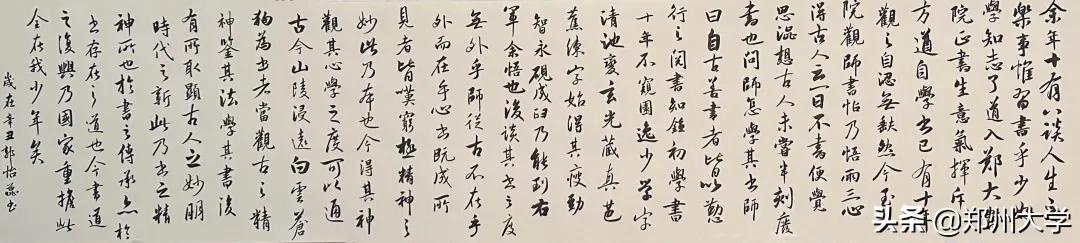 余年十有八谈人生之
乐事惟习书乎少出
学知志了道入郑大书
院正书生意气挥斥
方遒自学书已有十年
观之自认无缺然今至
院观师书帖乃悟而三心
得古人云一日不书便觉
思涩想古人未尝半刻废
书也问师怎学其书师
曰自古善书者皆以勤
行之阅书知钟初学书
十年不窥园逸少学字
清池变玄光藏真芭
蕉练字始得其瘦劲
智永砚成臼乃能到右
军余悟也后谈其书之度
无外乎师从古不在乎
外而在乎心书既成所
见者皆叹穷极精神之
妙此乃本也今得其神
观其心学之度可以通
古今山陵浸远白云苍
狗为书者当观古之精
神鉴其法学其书后
有所取显古人之妙明
时代之新此乃书之精
神所也于书之传承亦于
书存在之道也今书道
之复兴乃国家重担此
全在我少年矣
岁在辛丑郭怡蕊书
头条@郑州大学